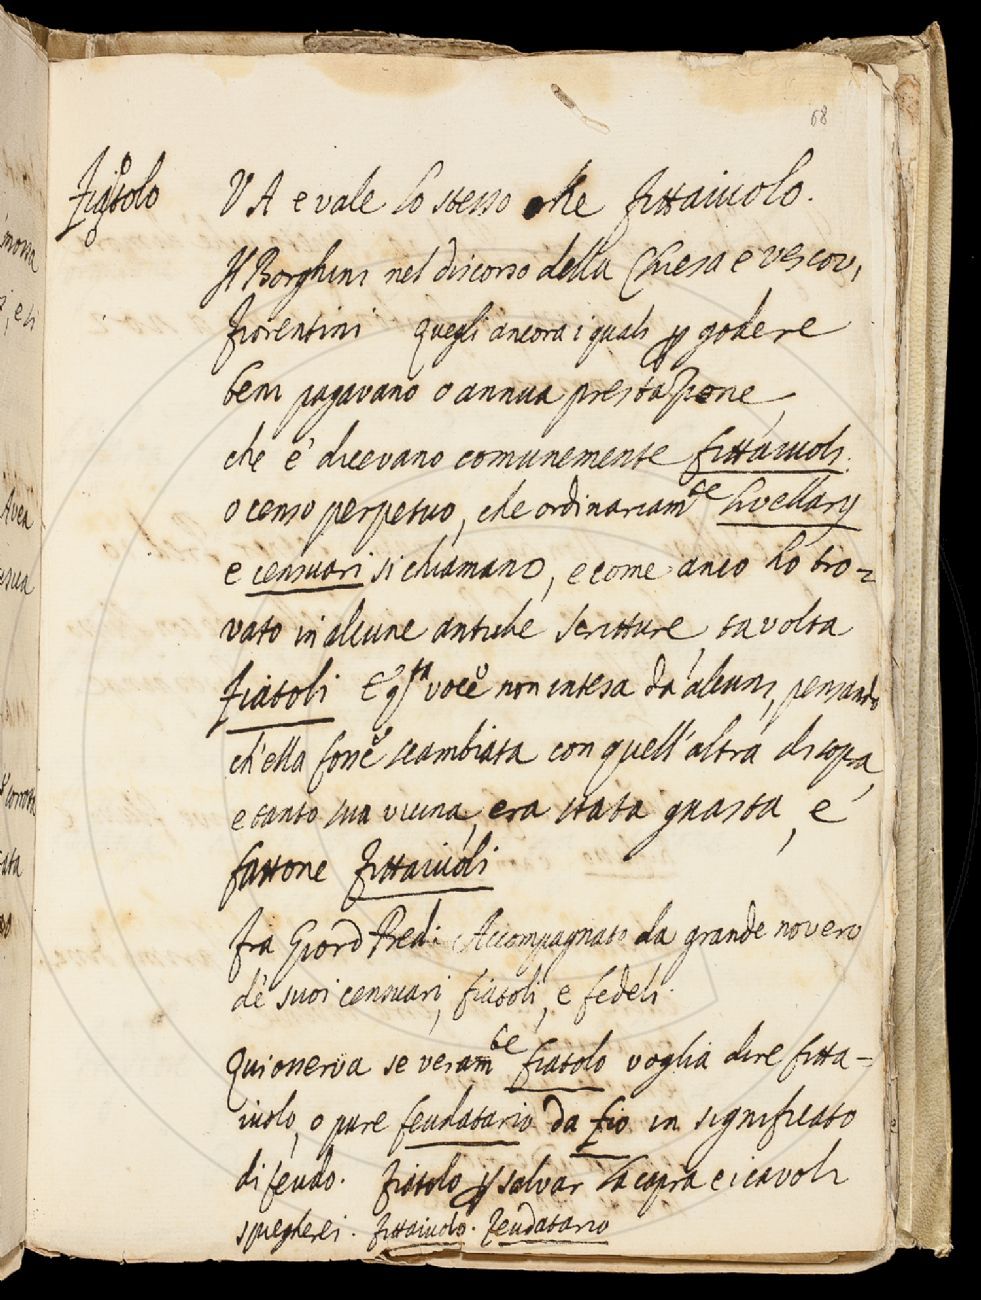 68
Fiatolo
VA e vale lo stesso che fittaiuolo.
Il Borghini nel discorso della Chiesa e vescovi
fiorentini quegli ancora i quali p godere
beni pagavano o annua prestazione,
che e' dicevano comunemente fittaiuoli.
o censo perpetuo, che ordinariam.te livellarij
e censuari si chiamano, e come anco ho tro=
vato in alcune antiche scritture, tavolta
fiatoli E q.ta voce non intesa da alcuni, pensando
ch'ella fosse scambiata con quell'altra di sopra
e tanto sua vicina, era stata guasta, e
fattone fittaiuoli
fra Giord Redi: Accompagnato da grande novero
de' suoi censuari, fiatoli, e fedeli.
Qui osserva se veram.te fiatolo voglia dire fitta=
iuolo, o pure feudatario da fio in significato
di feudo. fiatolo p salvar la capra e i cavoli
spiegherei. fittaiuolo. feudatario
mossa
Avea